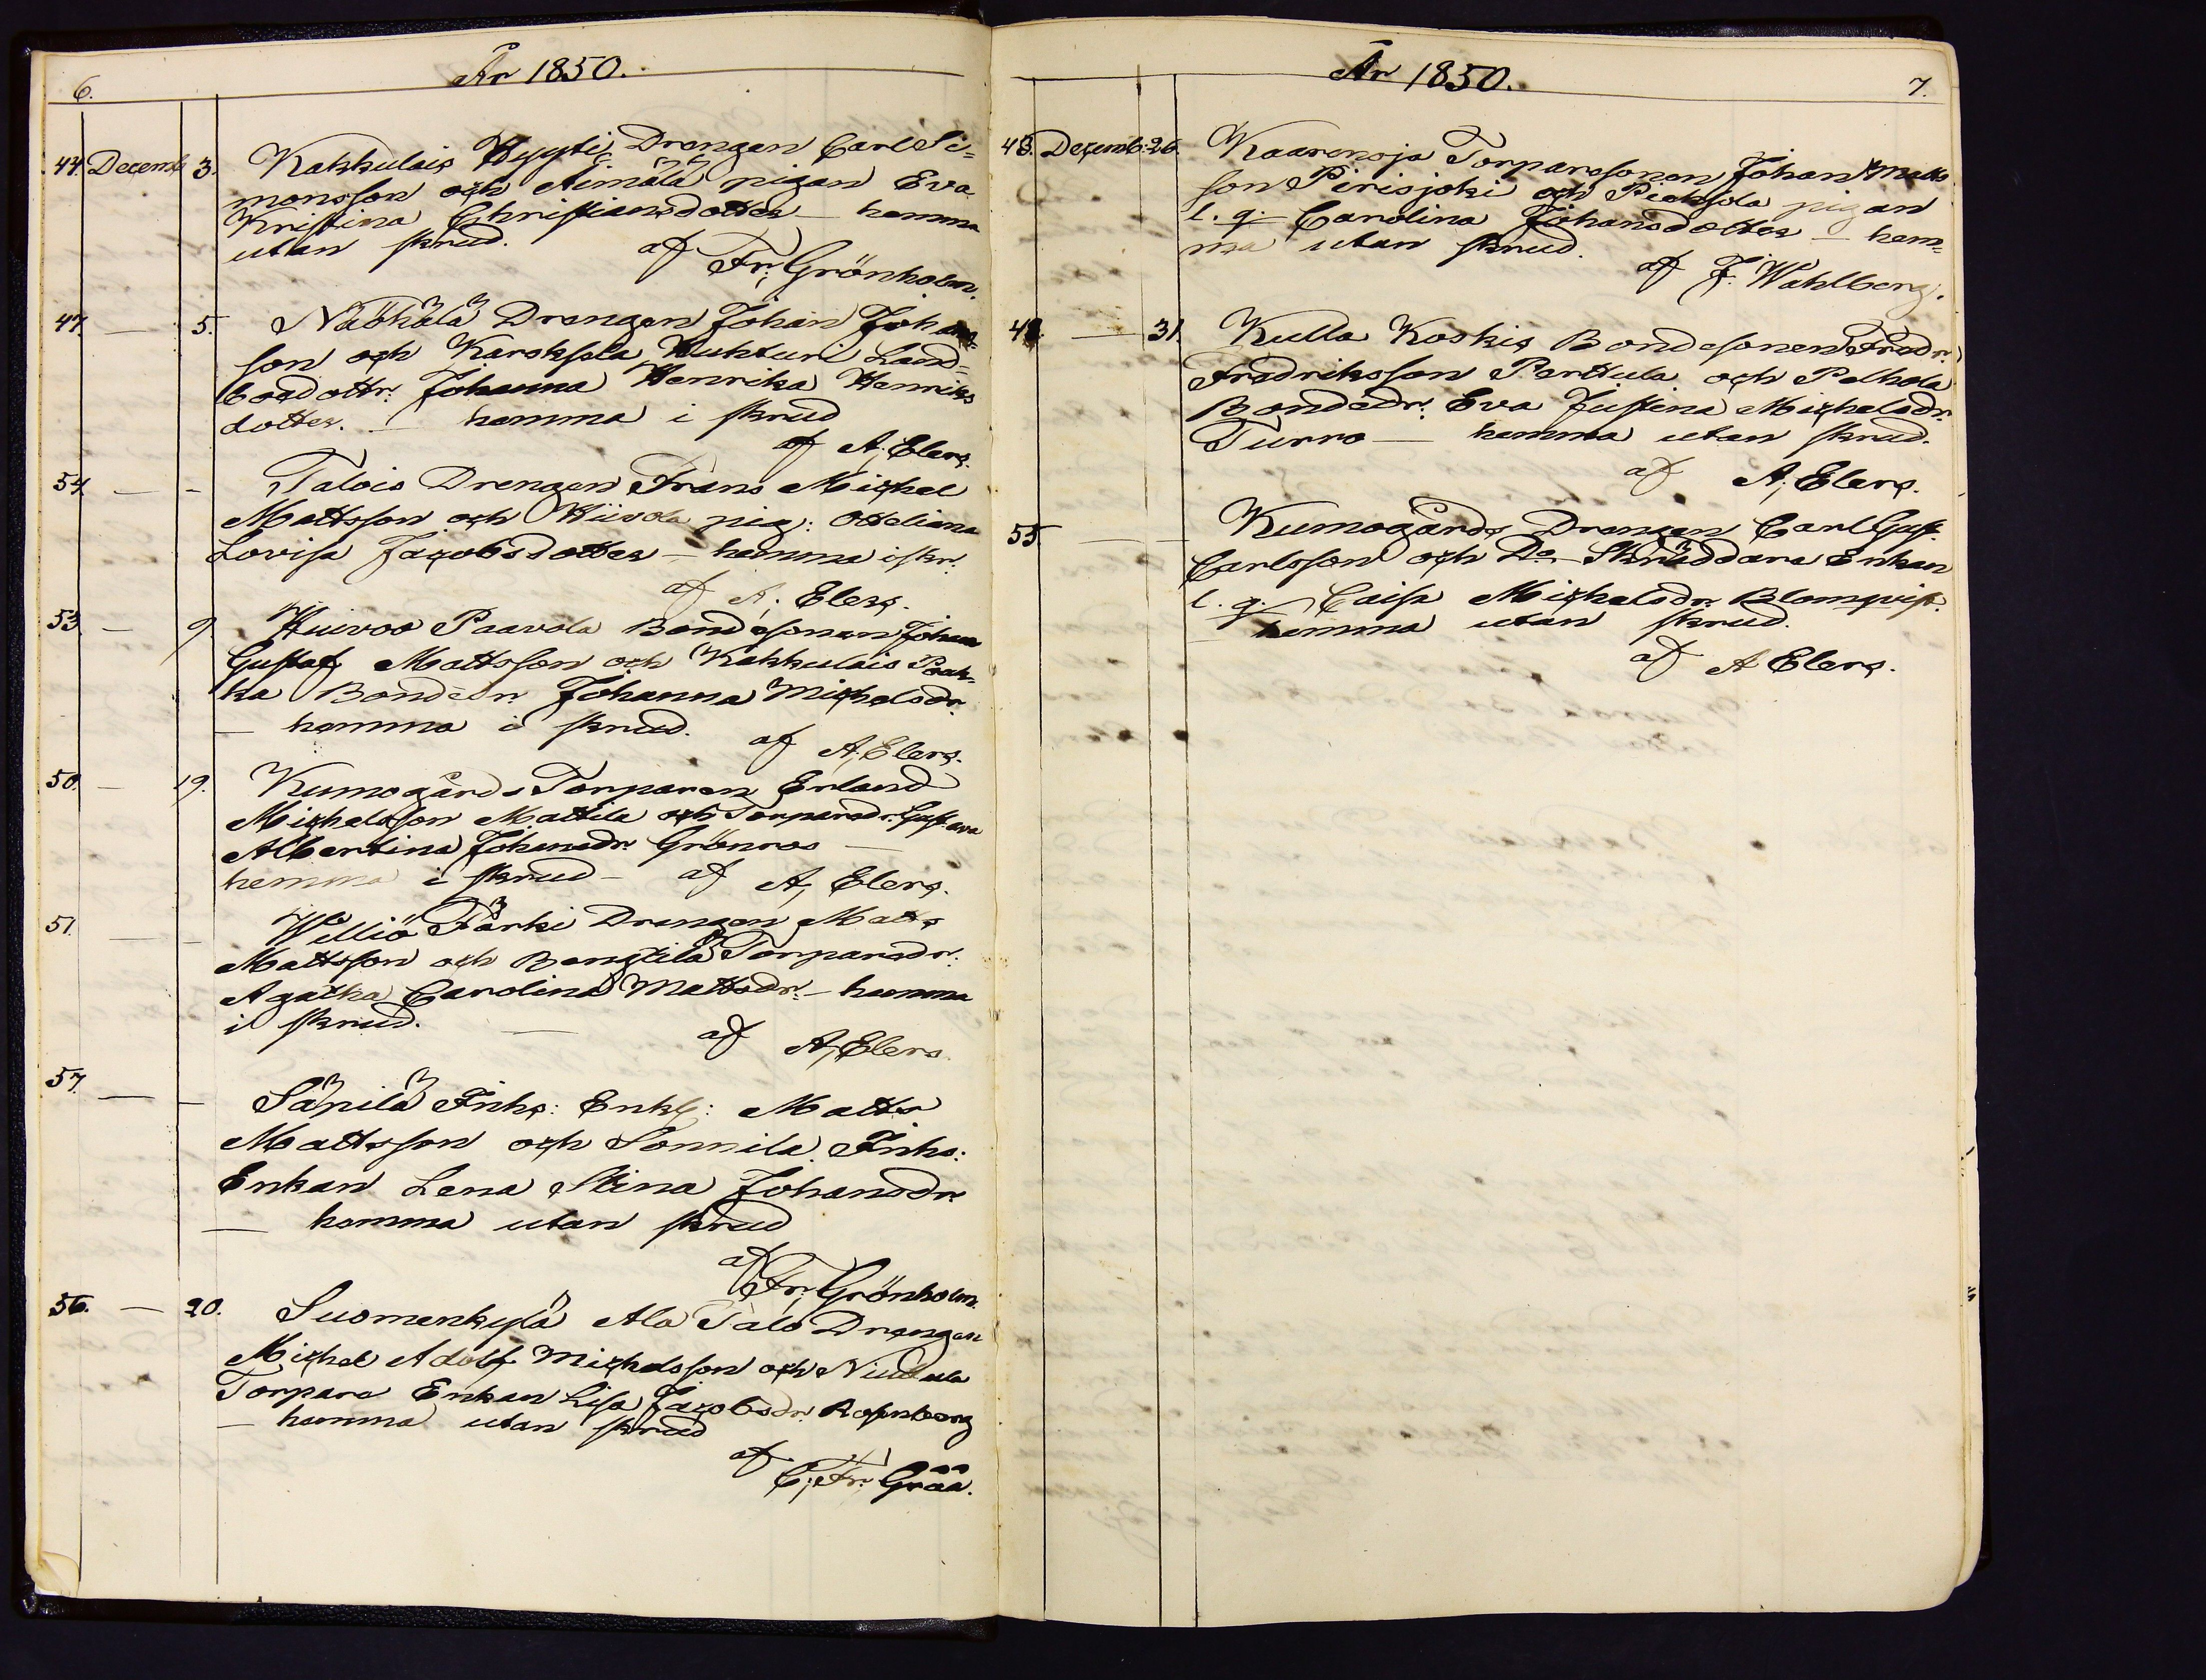 År 1850.
6.
44. Decemb 3. Kakkulais Hyyti Drengen Carl Si=
monsson och Äimälä pigan Eva
Kristina Christiansdotter — hemma
utan skrud. af Fr: Grönholm.
47. — 5. Näohälä Drengen Johan Johans
son och Karoksela Kukkuri Land=
boadottr: Johanna Henrika Henriks
dotter. — hemma i skrud
af A: Elers.
54 — - Talois Drengen Frans Michel
Mattsson och Hiivola pig: Otteliana
Lovisa Jacobsdotter — hemma i skr:
af A: Elers.
53 — 9 Huivoo Paavola Bondesonen Johan
Gustaf Mattsson och Kakkulais Paak=
ka Bondedr: Johanna Michelsdr.
— hemma i skrud. af A: Elers.
50. — 19. Kumogårds Torparen Erland
Michelsson Mattila och Torparedr: Gustava
Albertina Johansdr: Grönroos —
hemma i skrud — af A, Elers.
51. — - Williö Färki Drengen Matts
Mattsson och Bengtilä Torparedr.
Agatha Carolina Mattsdr. — hemma
i skrud. — af A, Elers
57. — - Säpilä Inhs: Enkl: Matts
Mattsson och Sonnila Inhs:
Enkan Lena Stina Johansdr.
— hemma utan skrud
af Fr: Grönholm.
56. — 20. Suomenkylä Ala Talo Drengen
Michel Adolf Michelsson och
Torpare Enkan Lisa Jacobsdr: Rosenberg
— hemma utan skrud
af C: Fr: Gråå.
År 1850.
7.
43. Decemb: 26. Kaarenoja Torparesonen Johan Matts
son Pirisjoki och Pieksola pigan
l. q. Carolina Johansdotter — hem=
ma utan skrud. af J. Wahlberg.
48. — 31. Kulla Koskis Bondesonen Fredr:
Fredriksson Perttula och Pelhola
Bondedr: Eva Justina Michelsdr.
Turro — hemma utan skrud.
af A: Elers.
55. — - Kumogårds Drengen Carl Gust.
Carlsson och Do Skräddare Enkan
l. q. Caisa Michelsdr. Blomqvist
hemma utan skrud.
af A Elers.